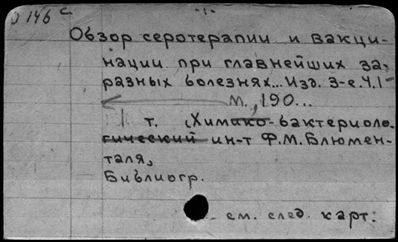 О 146 с
Обзор серотерапии и вакци-
нации при главнейших за-
разных болезнях... Изд. 3-е. Ч. 1-
м., 190...
1 т. (Химико-бактериоло-
гический ин-т Ф.М. Блюмен-
таля,
Библиогр.
см. след. карт.